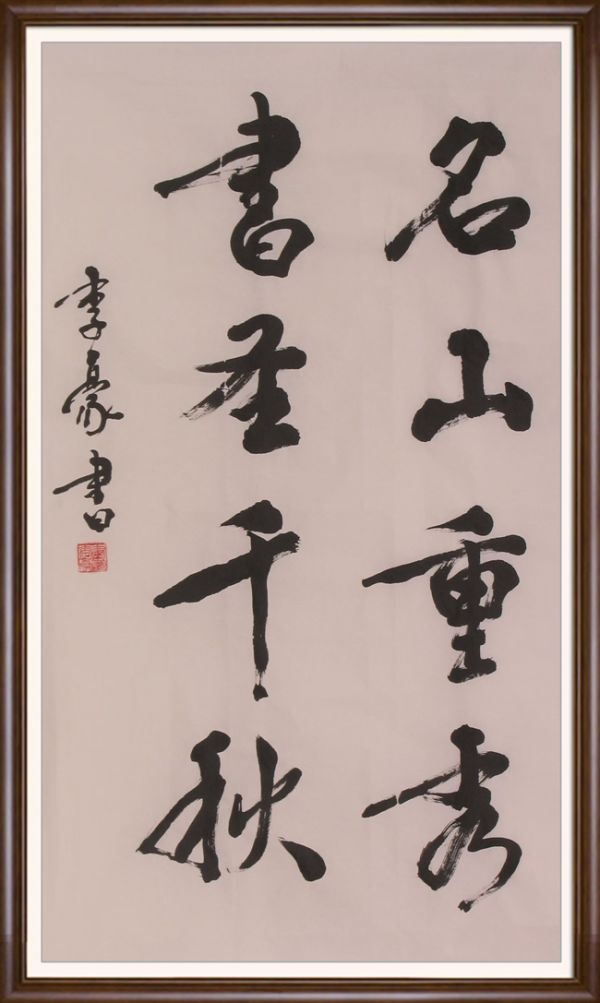 名山重秀
書圣千秋
李豪书